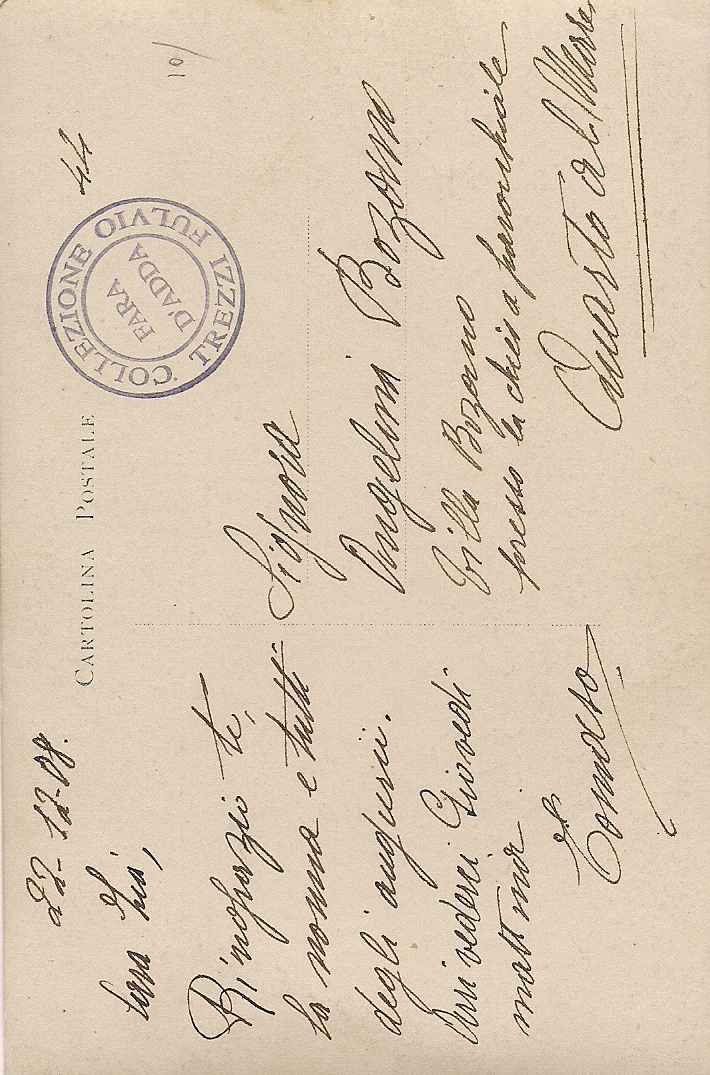 CARTOLINA POSTALE
22-12-08.
Cara Zia,
Ringrazio te,
la nonna e tutti
degli augurii.
Arrivederci Giovedi
mattina.
Tomaso
COLLEZIONE TREZZI FULVIO
FARA
D'ADDA
44
10/
Signora
Angelina Bozano
Villa Bozano
presso la chiesa parrochiale
Quarto al Mare